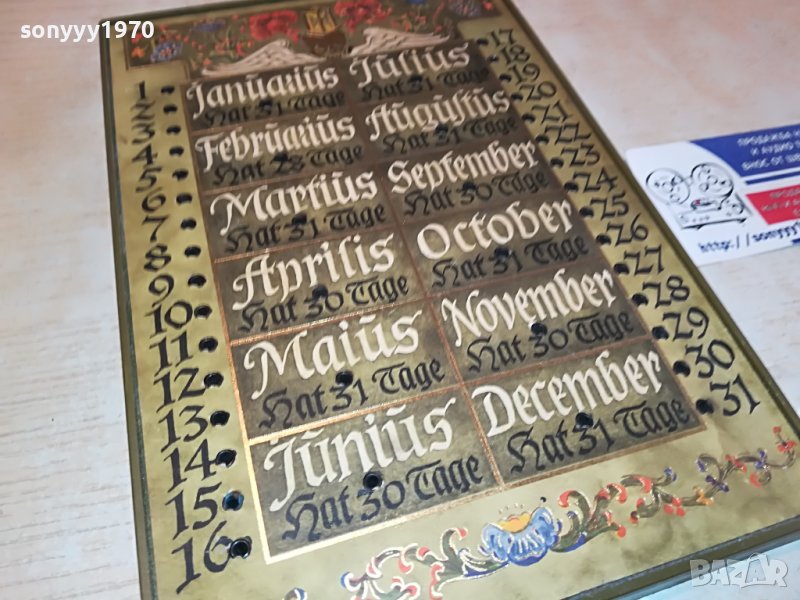 sonyyy1970
Januarius
Hat 31 Tage
Julius
Hat 31 Tage
Februarius
Hat 28 Tage
Augustus
Hat 31 Tage
Martius
Hat 31 Tage
September
Hat 30 Tage
Aprilis
Hat 30 Tage
October
Hat 31 Tage
Maiŭs
Hat 31 Tage
November
Hat 30 Tage
Juniŭs
Hat 30 Tage
December
Hat 31 Tage
1
2
3
4
5
6
7
8
9
10
11
12
13
14
15
16
17
18
19
20
21
22
23
24
25
26
27
28
29
30
31
ПРОДАЖБА
И АУДИО
ВНОС ОТ
http://sonyyy
BAZAR